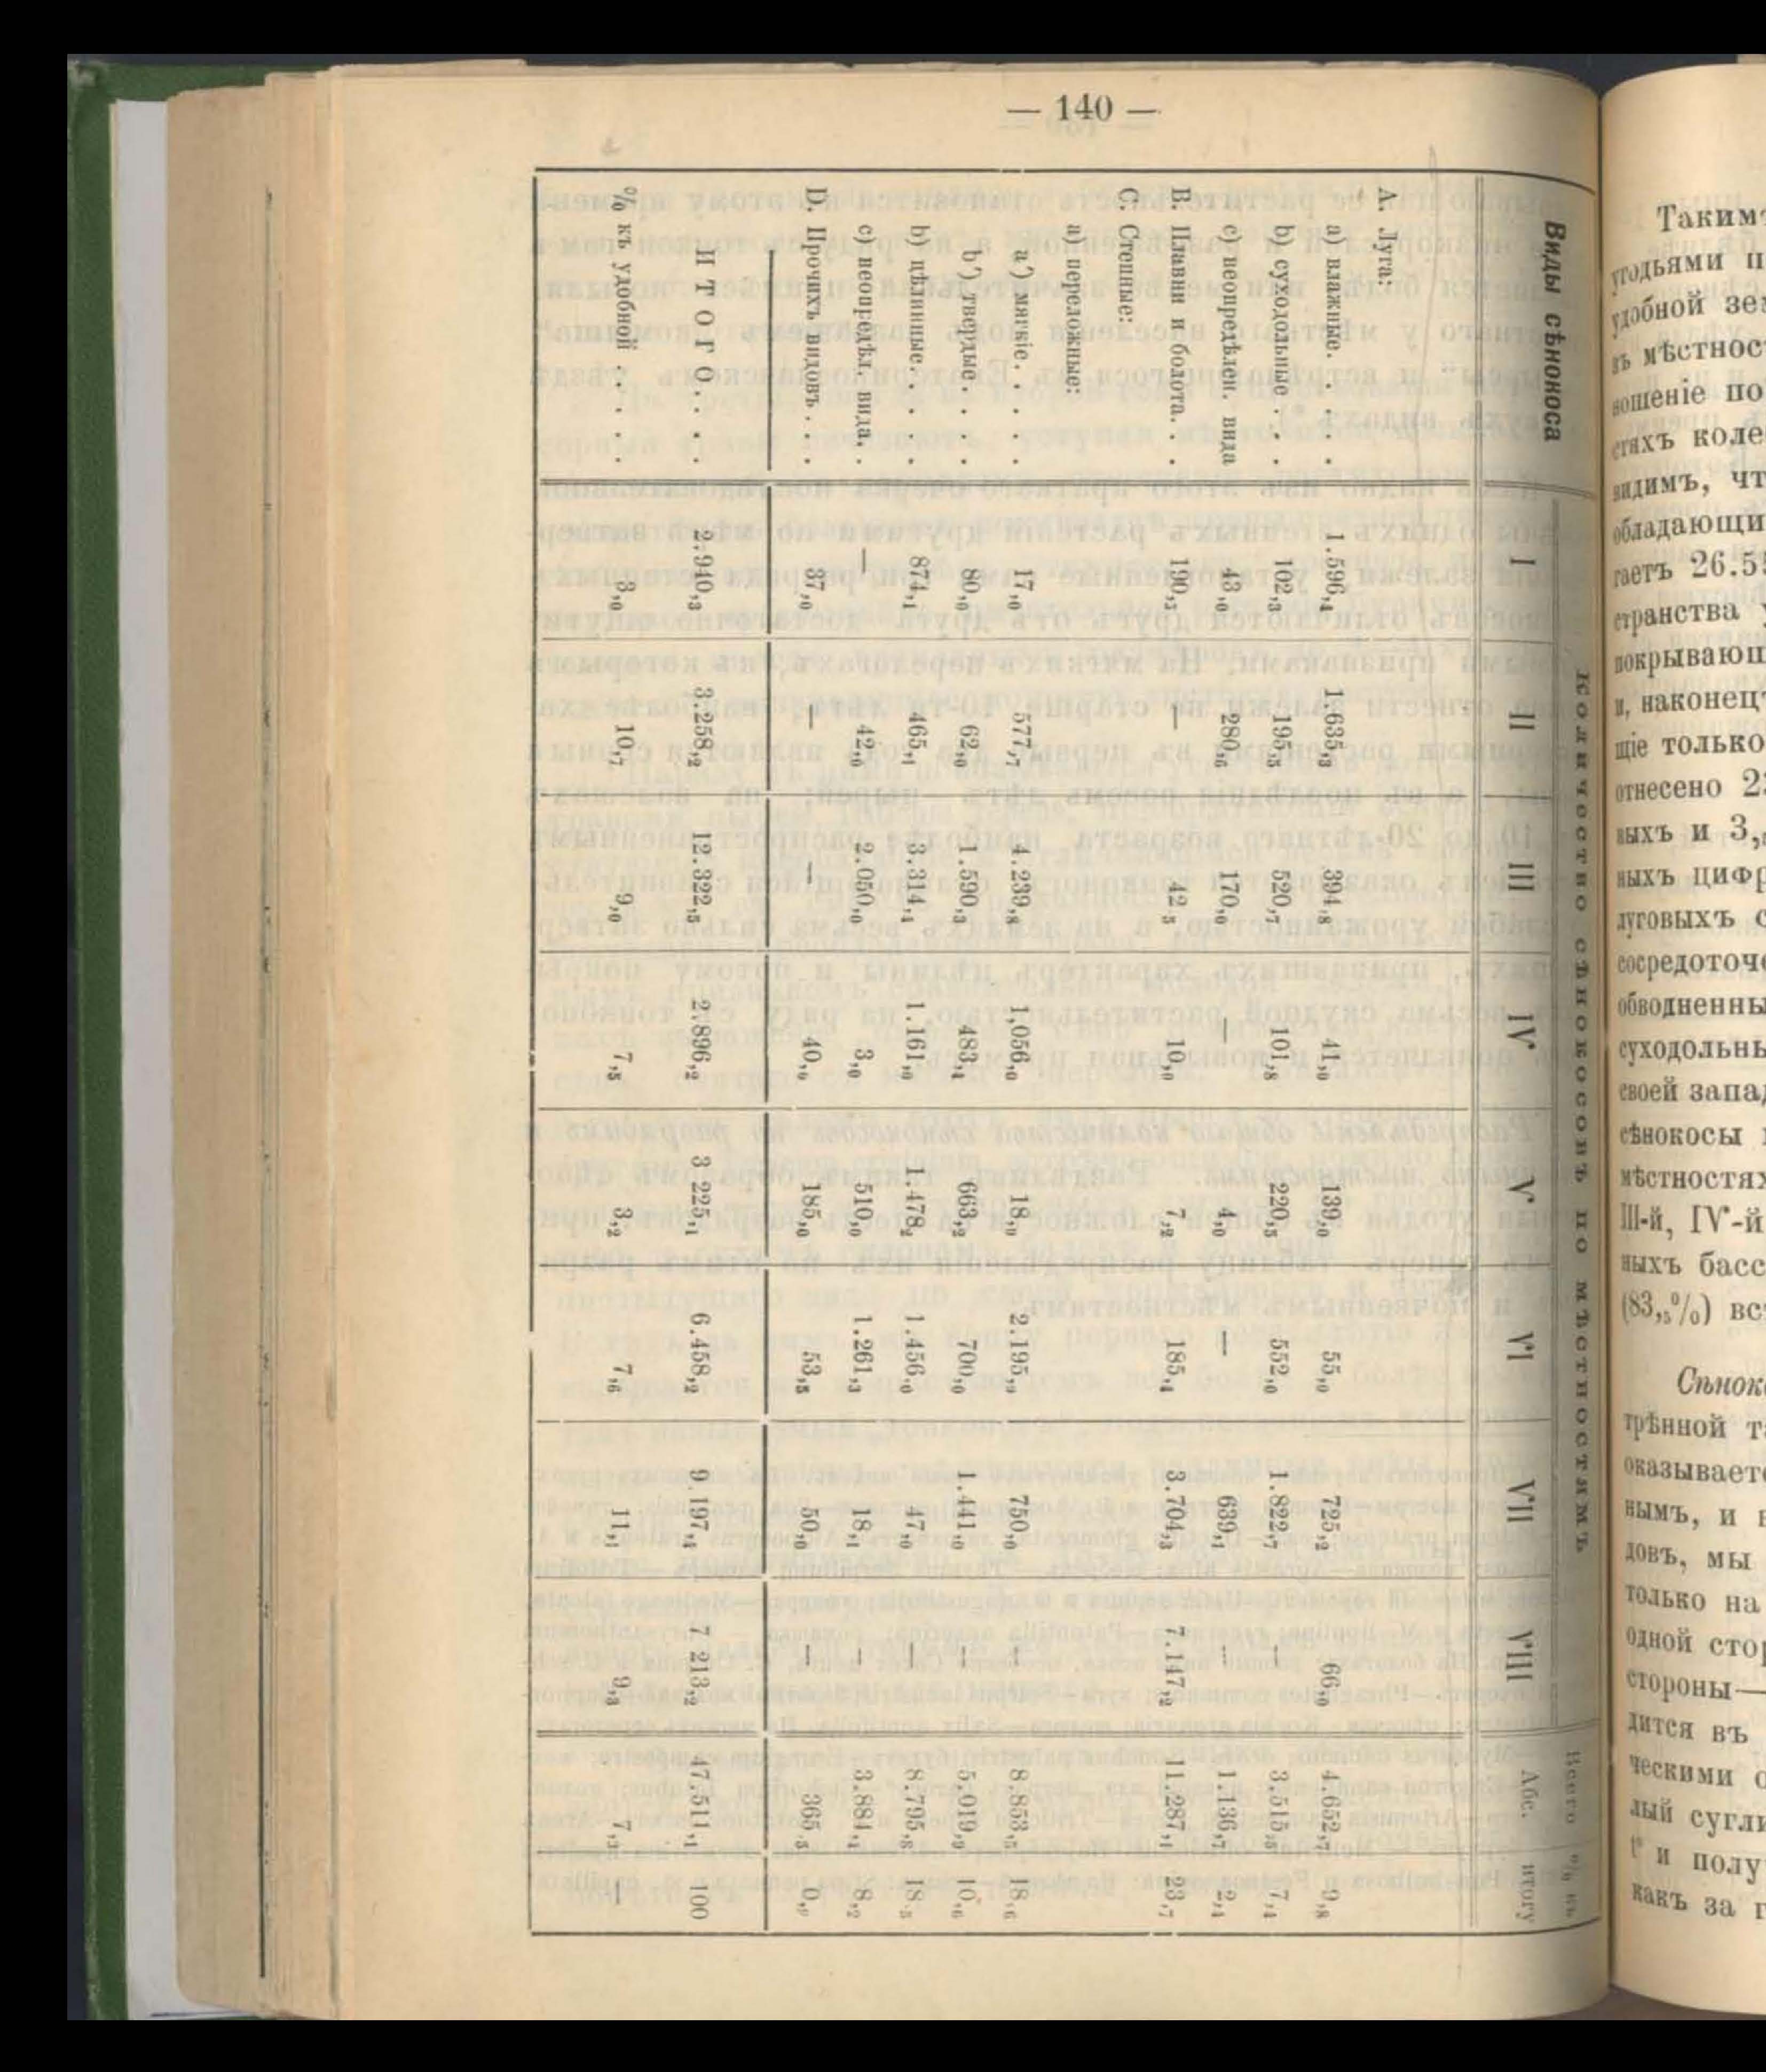 — 140 —
Виды сѣнокоса
Количество сѣнокосовъ по мѣстностямъ
Всего
% къ
I II III IV V VI VII VIII Абс. итогу
А. Луга:
а) влажные. . . . 1.596,4 1.635,3 394,8 41,0 139,0 55,0 725,2 66,0 4.652,7 9,8
b) суходольные . . . 102,3 195,5 520,7 101,8 220,5 552,0 1.822,7 — 3.515,5 7,4
c) неопредѣлен. вида 43,0 280,6 170,0 — 4,0 — 639,1 — 1.136,7 2,4
В. Плавни и болота. . . 190,5 — 42,5 10,0 7,2 185,4 3.704,3 7.147,2 11.287,1 23,7
С. Степные:
а) переложные:
а') мягкіе. . . . 17,0 577,7 4.239,8 1,056,0 18,0 2.195,0 750,0 — 8.853,5 18,6
b') твердые . . . 80,0 62,0 1.590,3 483,4 663,2 700,0 1.441,0 — 5.019,9 10,6
b) цѣлинные. . . . 874,1 465,1 3.314,4 1.161,0 1.478,2 1.456,0 47,0 — 8.795,8 18,5
c) неопредѣл. вида. . — 42,0 2.050,0 3,0 510,0 1.261,3 18,1 — 3.884,4 8,2
D. Прочихъ видовъ . . . 37,0 — — 40,0 185,0 53,5 50,0 — 365,5 0,8
ИТОГО. . . . 2.940,3 3.258,2 12.322,5 2.896,2 3 225,1 6.458,2 9.197,4 7 213,2 47.511,1 100
% къ удобной . . . . 3,0 10,7 9,0 7,5 3,2 7,6 11,1 9,3 7,3 —
Такимъ
угодьями п
удобной зем
въ мѣстнос
ношеніе по
стяхъ коле
видимъ, чт
обладающи
гаетъ 26.55
странства у
покрывающ
и, наконецъ
щіе только
отнесено 2
выхъ и 3,
ныхъ цифр
луговыхъ с
сосредоточе
обводненны
суходольны
своей запад
сѣнокосы
мѣстностях
III-й, IV-й
ныхъ басс
(83,5%) вс
Сѣнок
трѣнной та
оказывает
нымъ, и
довъ, мы
только на
одной стор
стороны—
дится въ
ческими
лый сугли
и полу
какъ за г